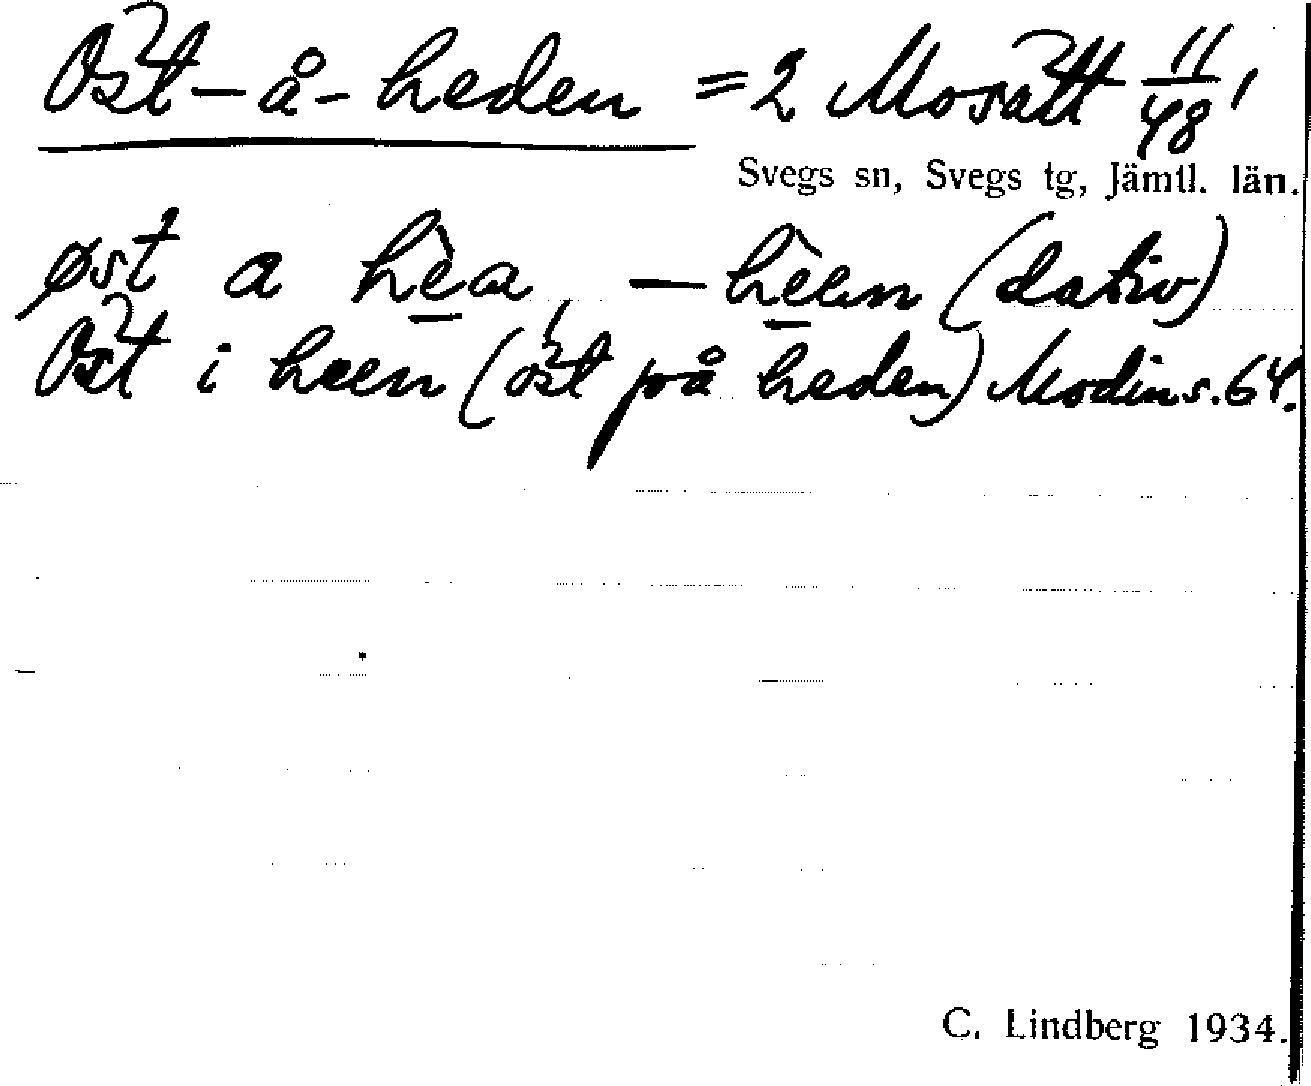 Öst-å-heden = 2 Mosätt 11/48,
Svegs sn, Svegs tg, Jämtl. län.
øst a hèa, — hèen (dativ)
Öst i heen (öst på heden) Modin s. 64.
C. Lindberg 1934.